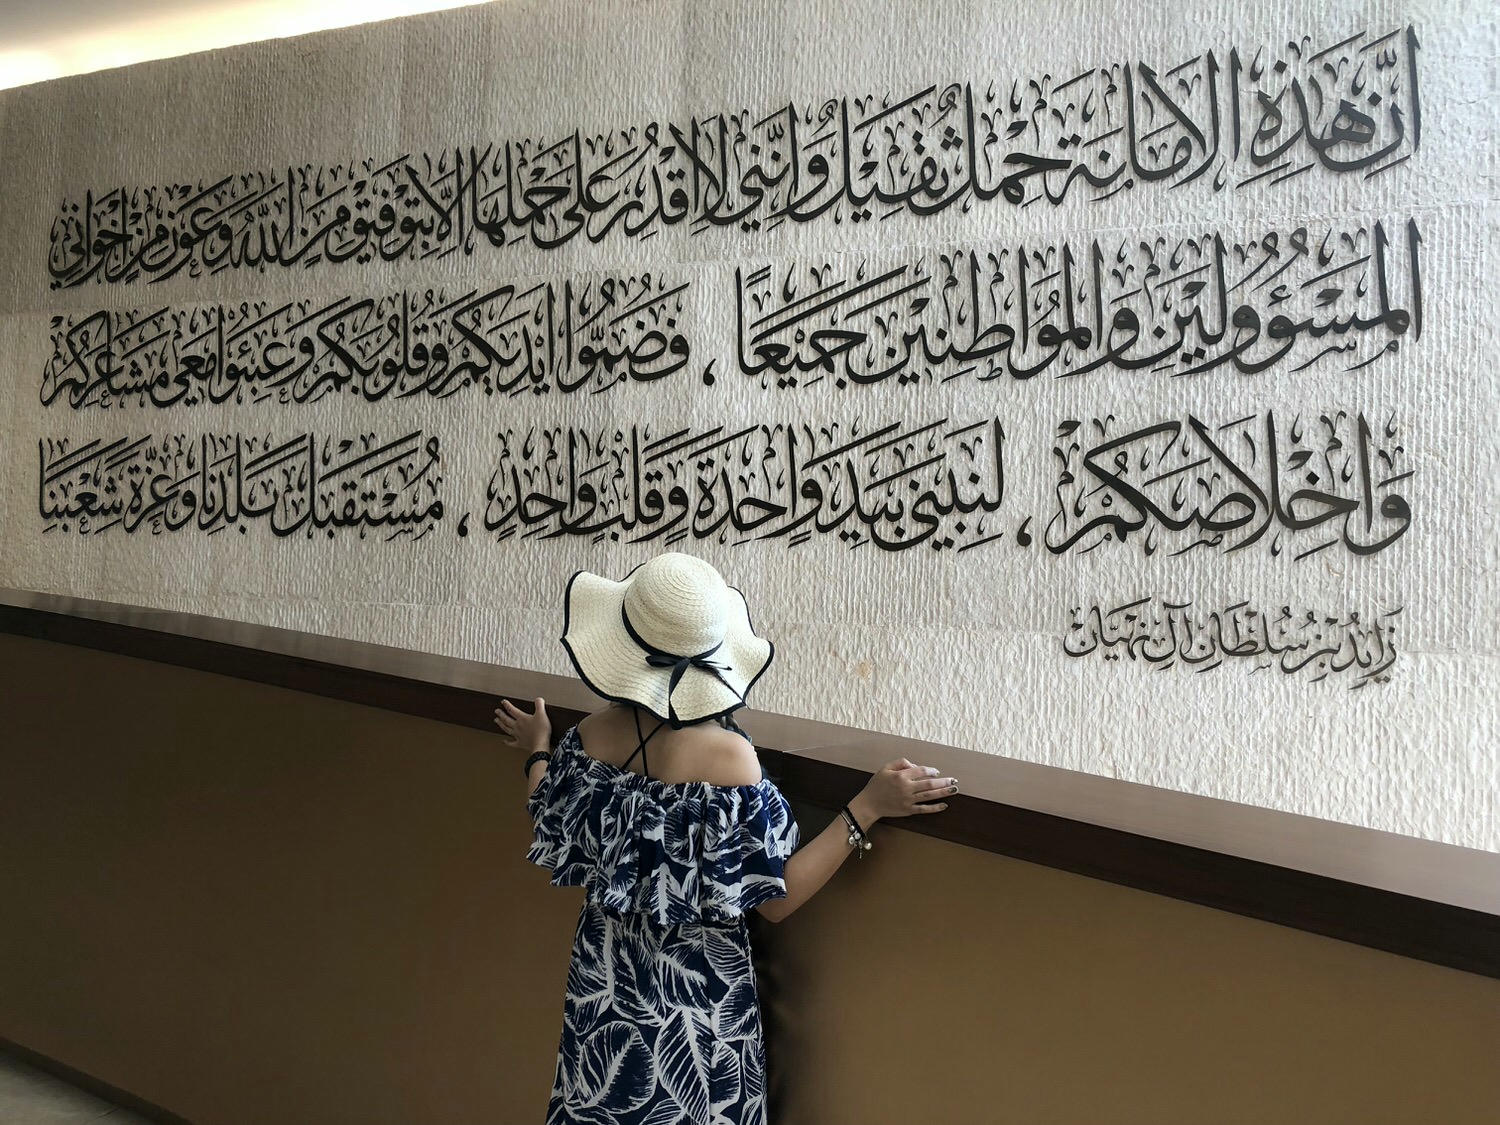 اِنَّ هَذِهِ الاَمَانَةَ حِمْلٌ ثَقِيلٌ وَاِنَّنِي لاَ اَقْدِرُ عَلَى حَمْلِهَا اِلاَّ بِتَوْفِيقٍ مِنَ اللهِ وَعَوْنٍ مِنْ اِخْوَانِي
المَسْؤُولِينَ وَالمُوَاطِنِينَ جَمِيْعًا ، فَضُمُّوا اَيْدِيَكُمْ وَقُلُوبَكُمْ وَعَبِّئُوا مَعِي مَشَاعِرَكُمْ
وَاِخْلاَصَكُمْ ، لِنَبْنِيَ بِيَدٍ وَاحِدَةٍ وَقَلْبٍ وَاحِدٍ ، مُسْتَقْبَلَ بَلَدِنَا وَعِزَّةَ شَعْبِنَا
زَايِدُ بْنُ سُلْطَانَ آلِ نَهْيَانَ